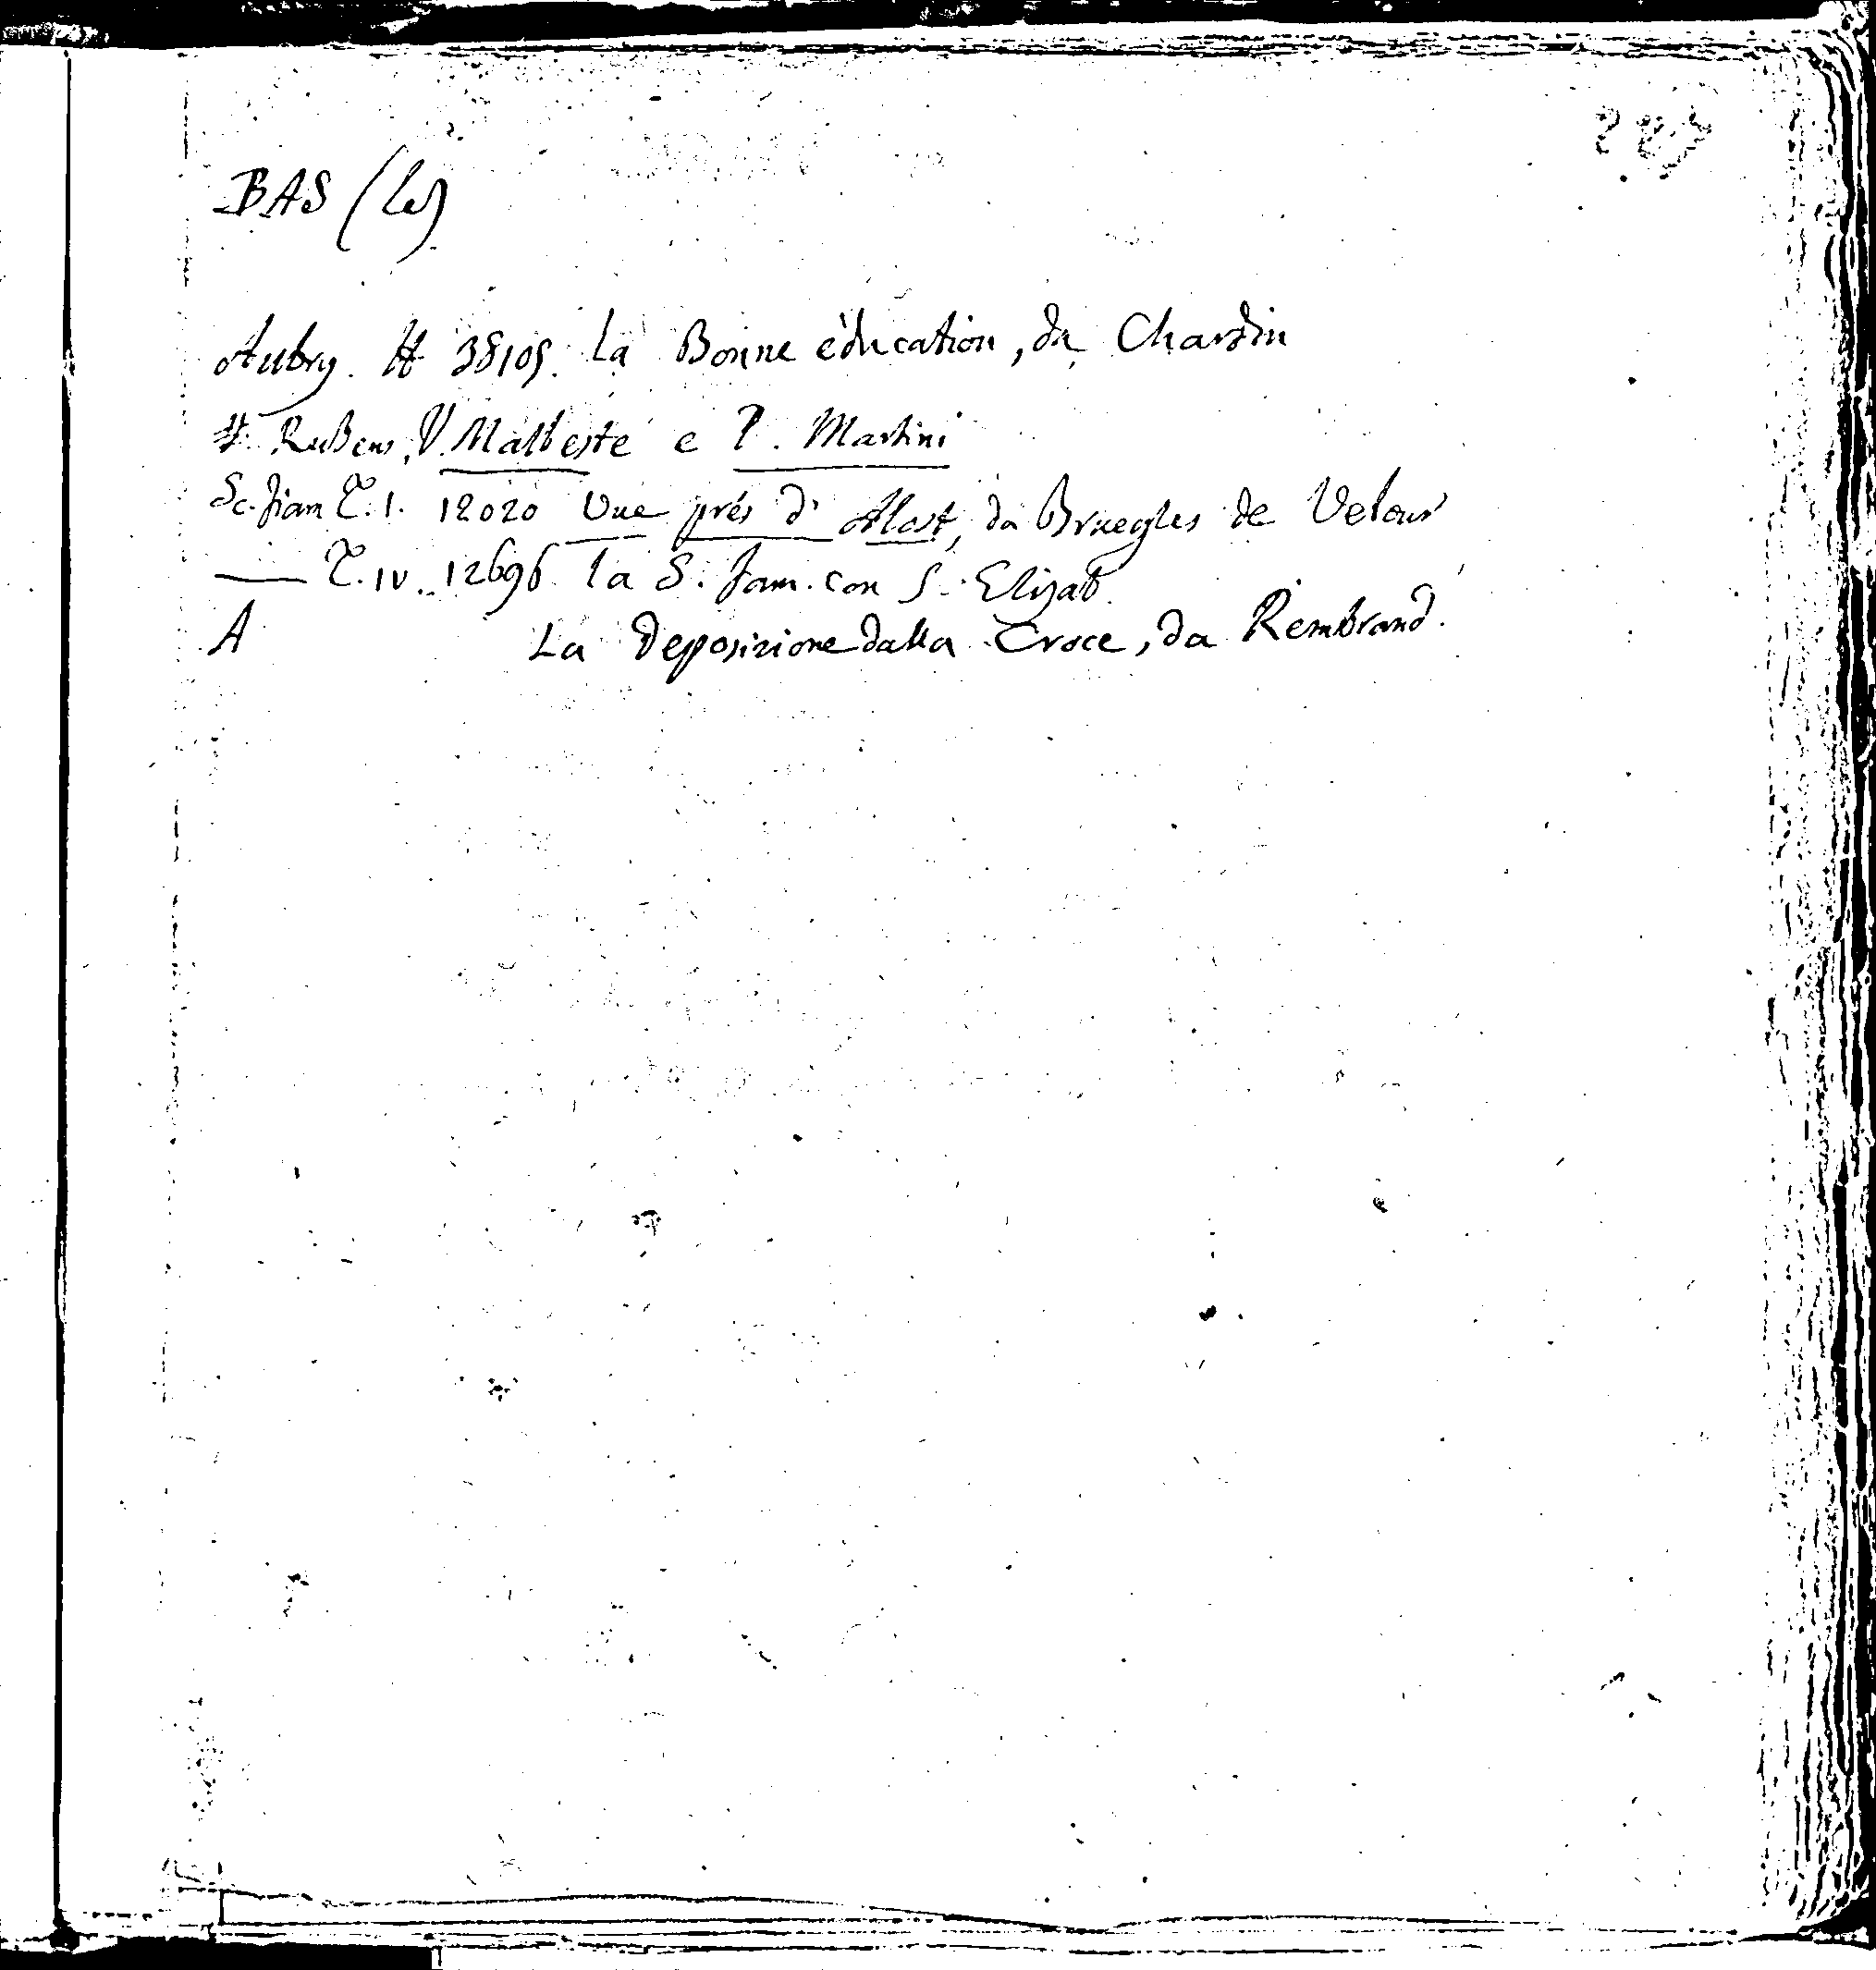 BAS (le)
Aubry. H 38109. La Bonne éducation, da Chardin
#. Rubens, V. Malbeste e P. Martini
Sc. fiam T. I. 12020 Vue prés d' Alost, da Bruegles de Velour
—— T. IV. 12696 la S. fam. con S. Elisab.
A La Deposizione dalla Croce, da Rembrand.